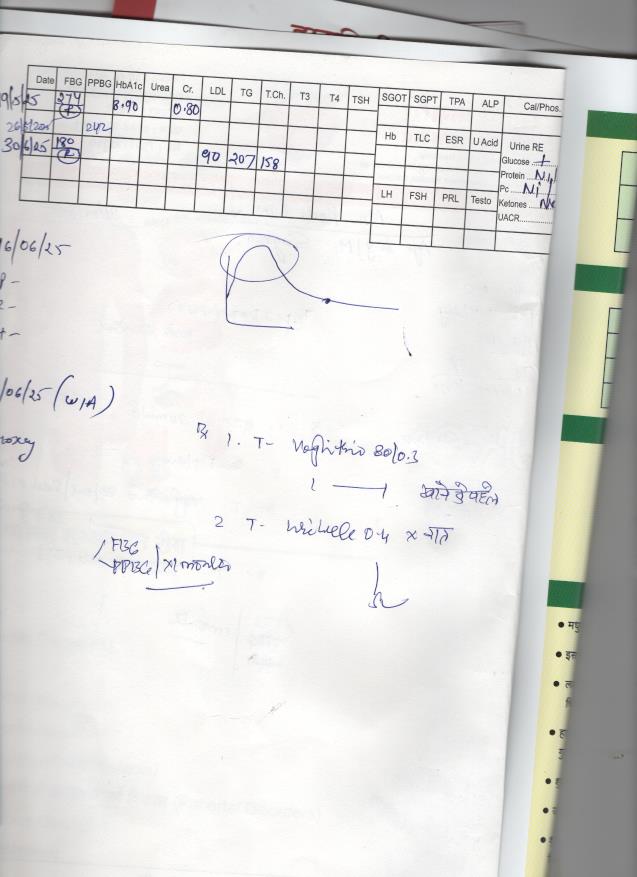 Date FBG PPBG HbA1c Urea Cr. LDL TG T.Ch. T3 T4 TSH SGOT SGPT TPA ALP Cal/Phos.
9/5/25 274 8.90 0.80
242
30/6/25 180 90 207 158
Hb TLC ESR U Acid Urine RE
Glucose +
Protein Nil
Pc Ni
LH FSH PRL Testo Ketones
UACR
16/06/25
/06/25 (W/A)
Rx 1. T- 80/0.3
1 — 1 खाने से पहले
2 T- 0.4 x रात
FBG
PPBG x1 month